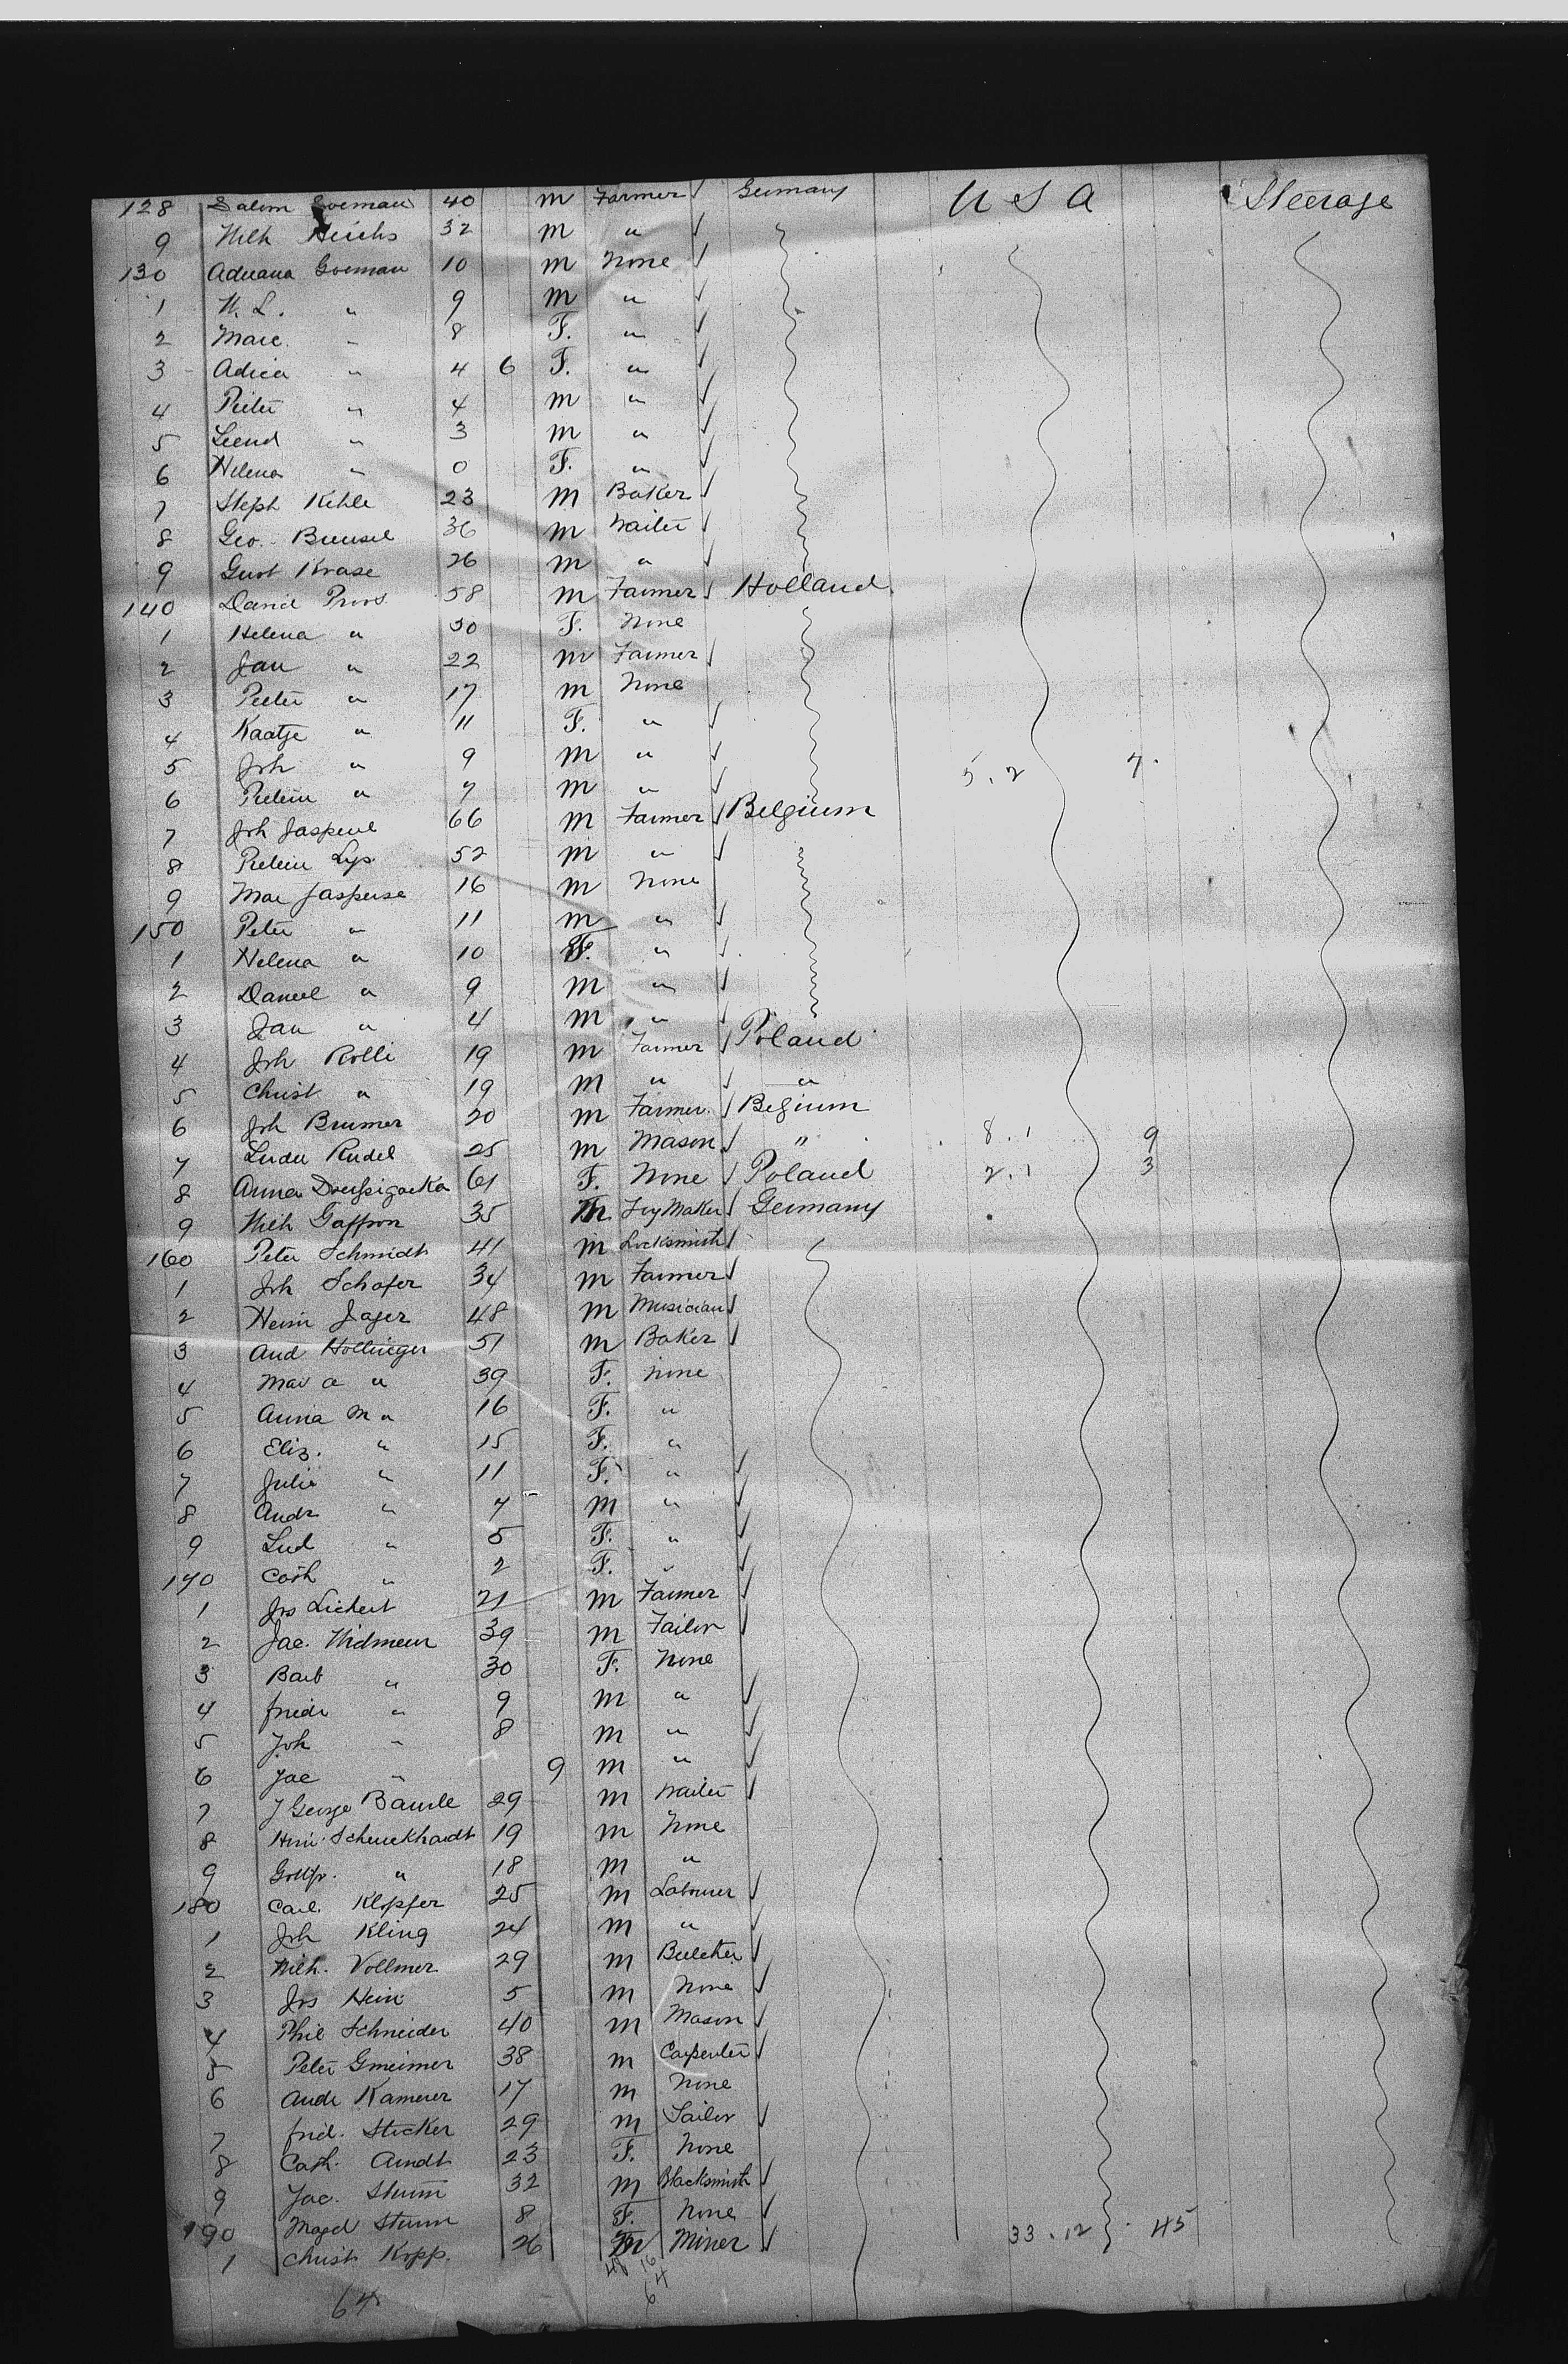 128 Salom Goeman 40 m Farmer Germany U S A Steerage
9 Wilh Heichs 32 m "
130 Aduana Goeman 10 m None
1 W. L. " 9 m "
2 Marc " 8 F. "
3 Adica " 4 6 F. "
4 Pieter " 4 m "
5 Leend " 3 m "
6 Helena " 0 F. "
7 Steph Kehle 23 m Baker
8 Geo. 36 m Waiter
9 Gust Krase 26 m "
140 David Pros 58 m Farmer Holland
1 Helena " 50 F. None
2 Jan " 22 m Farmer
3 Peeter " 17 m None
4 Kaatje " 11 F. "
5 Joh " 9 m " 5.2 7.
6 " 7 m "
7 Joh Jasperse 66 m Farmer Belgium
8 Lys 52 m "
9 Mar Jasperse 16 m None
150 Peter " 11 m "
1 Helena " 10 F. "
2 Daniel " 9 m "
3 Jan " 4 m "
4 Joh Rolli 19 m Farmer Poland
5 Christ " 19 m " "
6 Joh Brumer 20 m Farmer. Begium
7 Rudel 25 m Mason " 8.1 9
8 Anna 61 F. None Poland 2.1 3
9 Wilh Gaffron 35 m Toy Maker Germany
160 Peter Schmidt 41 m Locksmith
1 Joh Schafer 34 m Farmer
2 Heinr Jager 48 m Musician
3 And Hollinger 51 m Baker
4 Mar a " 39 F. None
5 Anna M " 16 F. "
6 Eliz. " 15 F. "
7 Julia " 11 F. "
8 Andr " 7 m "
9 Lud " 5 F. "
170 Cath " 2 F. "
1 Jos Lichert 21 m Farmer
2 Jac. Widmeur 39 m Tailor
3 Barb " 30 F. None
4 Friedr " 9 m "
5 Joh " 8 m "
6 Jac " 9 m "
7 J George Baurle 29 m Waiter
8 Heinr. Schuckhardt 19 m None
9 Gottfr. " 18 m "
180 Carl. Klopfer 25 m Labourer
1 Joh Kling 24 m "
2 Wilh. Vollmer 29 m Butcher
3 Jos Hein 5 m None
4 Phil Schneider 40 m Mason
5 Peter Gmeimer 38 m Carpenter
6 Andr Kamerer 17 m None
7 Frid. Stocker 29 m Tailor
8 Cath. Arndt 23 F. None
9 Jac. Sturm 32 m Blacksmith
190 Magd Sturm 8 F. None 33.12 45
1 Christ Kopp. 26 m Miner
48 16
64 64